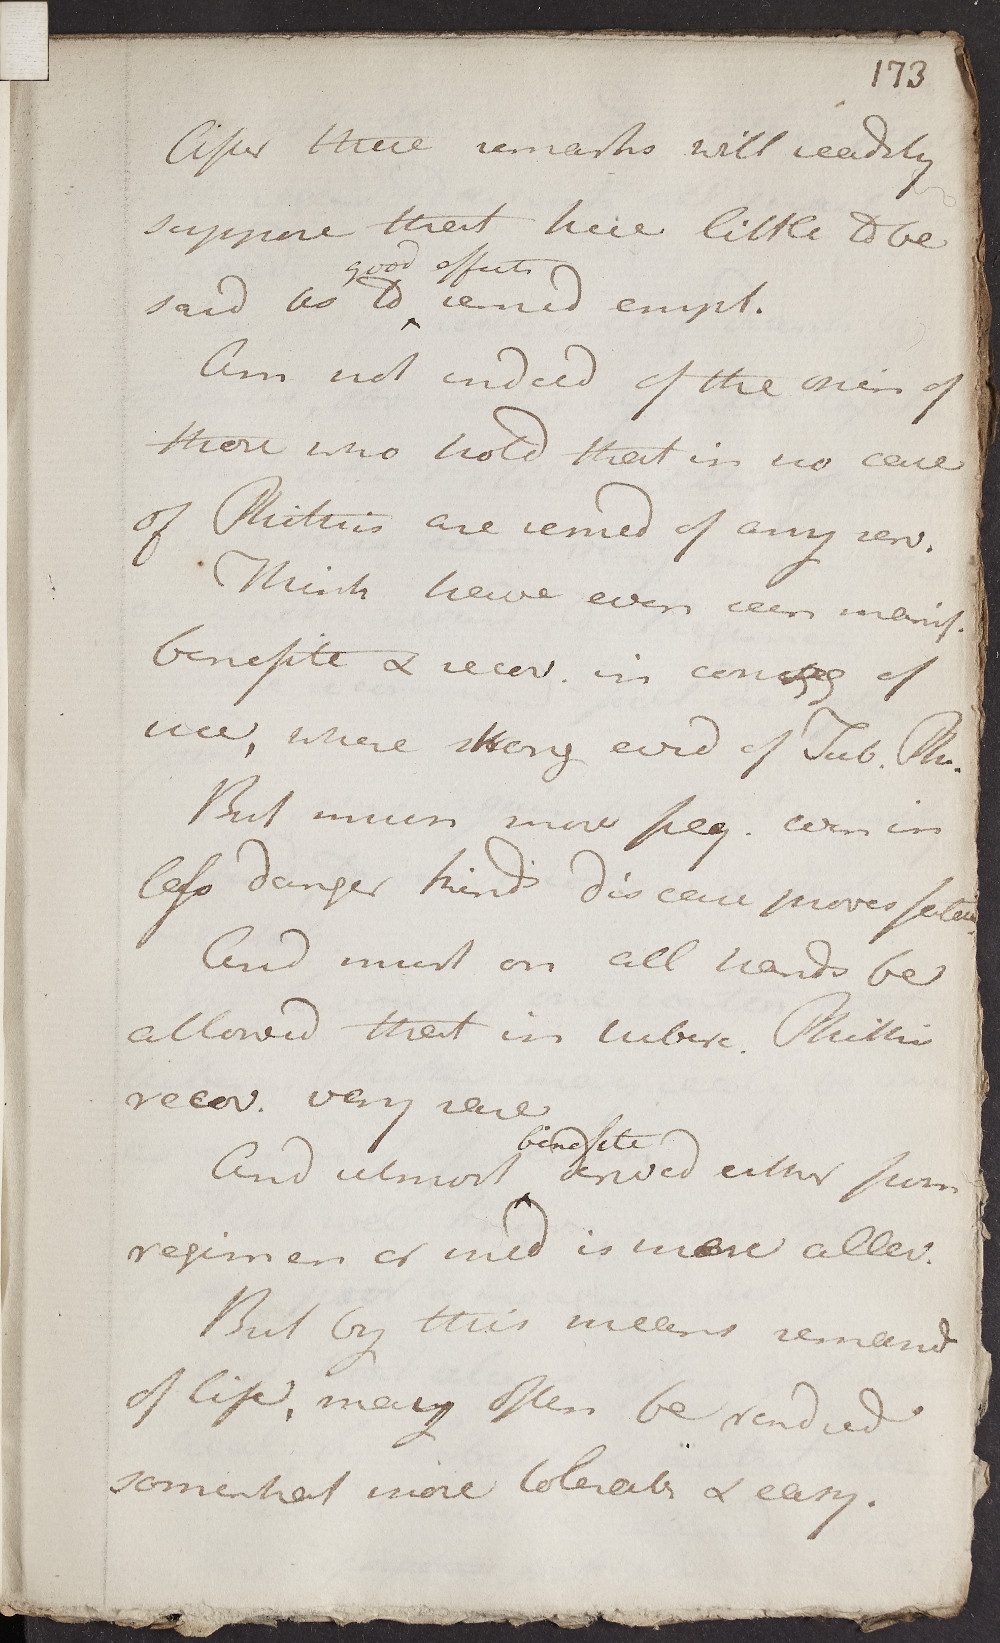 173
After these remarks will readily
suppose that here little to be
good effects
said as to remed empl.
Am not indeed of the opin of
those who hold that in no case
of Phthisis are remed of any serv.
Think have even seen manif.
benefite & recov. in conseq of
use, where strong evid of Tub. Pht.
But much more freq. even in
less danger kinds disease proves fatal.
And must on all hands be
allowed that in tuberc. Phthis
recov. very rare
benefite
And utmost derived either from
regimen or med is mere allev.
But by this means remaind
of life, may often be rendred
somewhat more tolerable & easy.